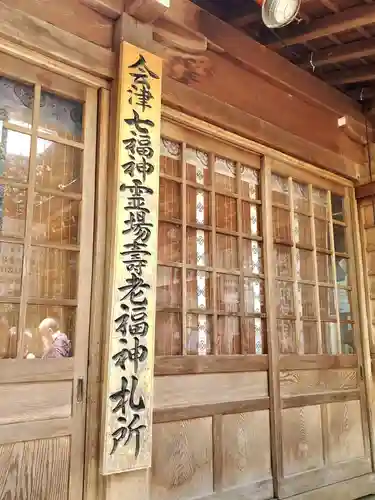 会津七福神霊場寿老福神札所